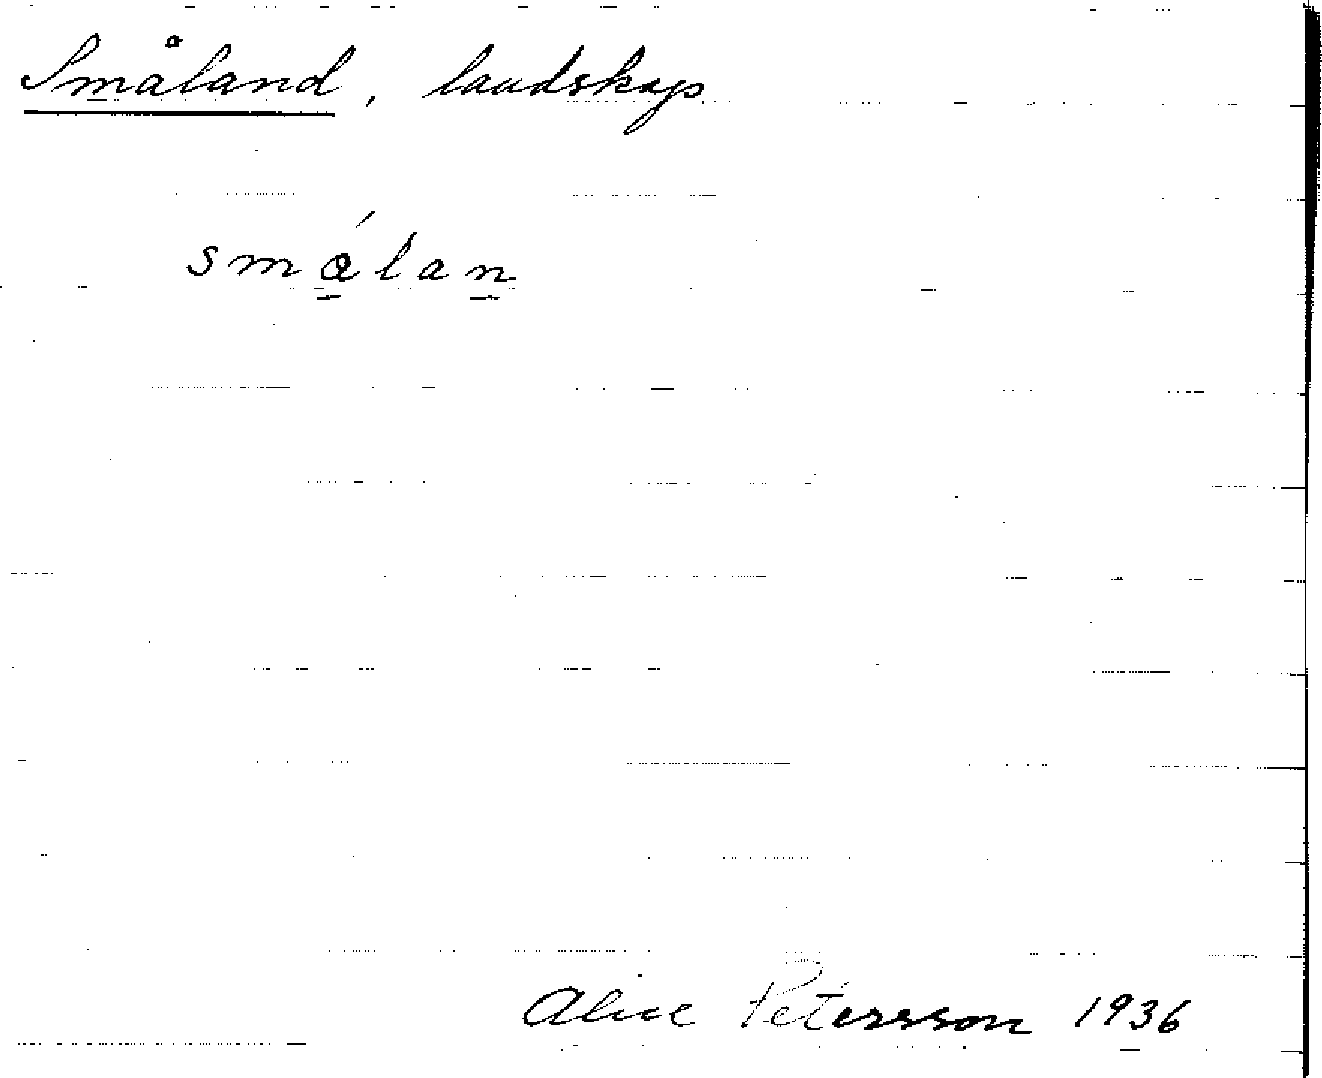 Småland, landskap
smá̱lan̠
Alice Petersson 1936